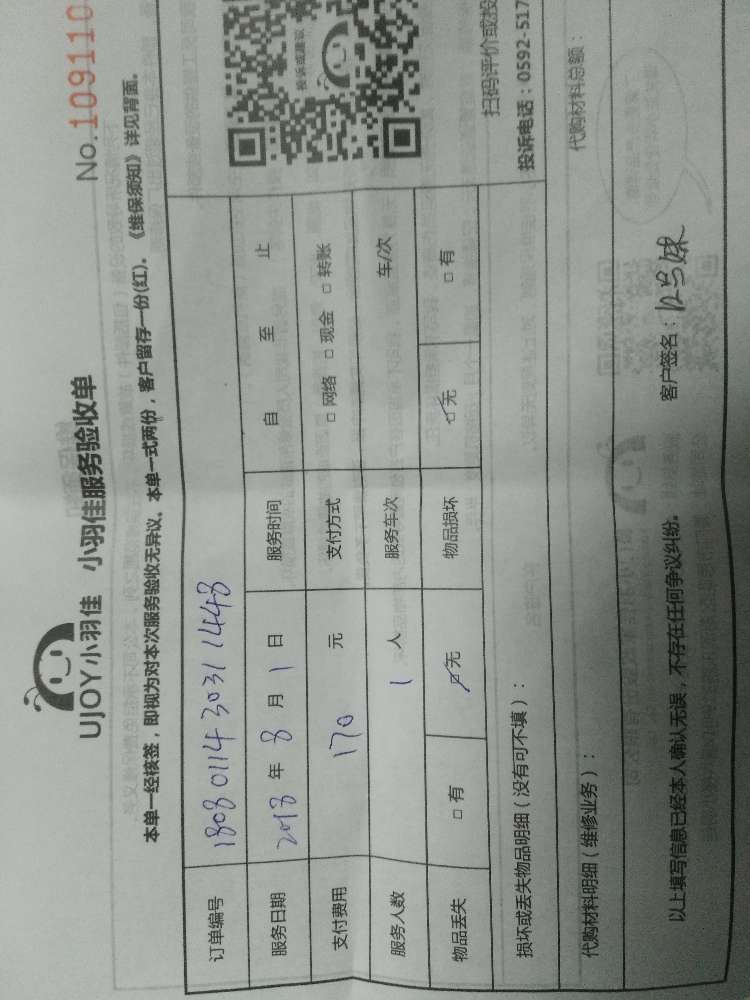 UJOY小羽佳 小羽佳服务验收单
No.109110
本单一经核签，即视为对本次服务验收无异议。本单一式两份，客户留存一份(红)。《维保须知》详见背面。
订单编号 1808 0114 3031 1448
服务日期 2018 年 8 月 1 日 服务时间 自 至 止
支付费用 170 元 支付方式 □ 网络 □ 现金 □ 转账
服务人数 1 人 服务车次 车/次
物品丢失 □ 有 ☑ 无 物品损坏 ☑ 无 □ 有
投诉或建议
扫码评价或投
投诉电话：0592-517
损坏或丢失物品明细（没有可不填）：
代购材料明细（维修业务）： 代购材料总额：
以上填写信息已经本人确认无误，不存在任何争议纠纷。 客户签名：